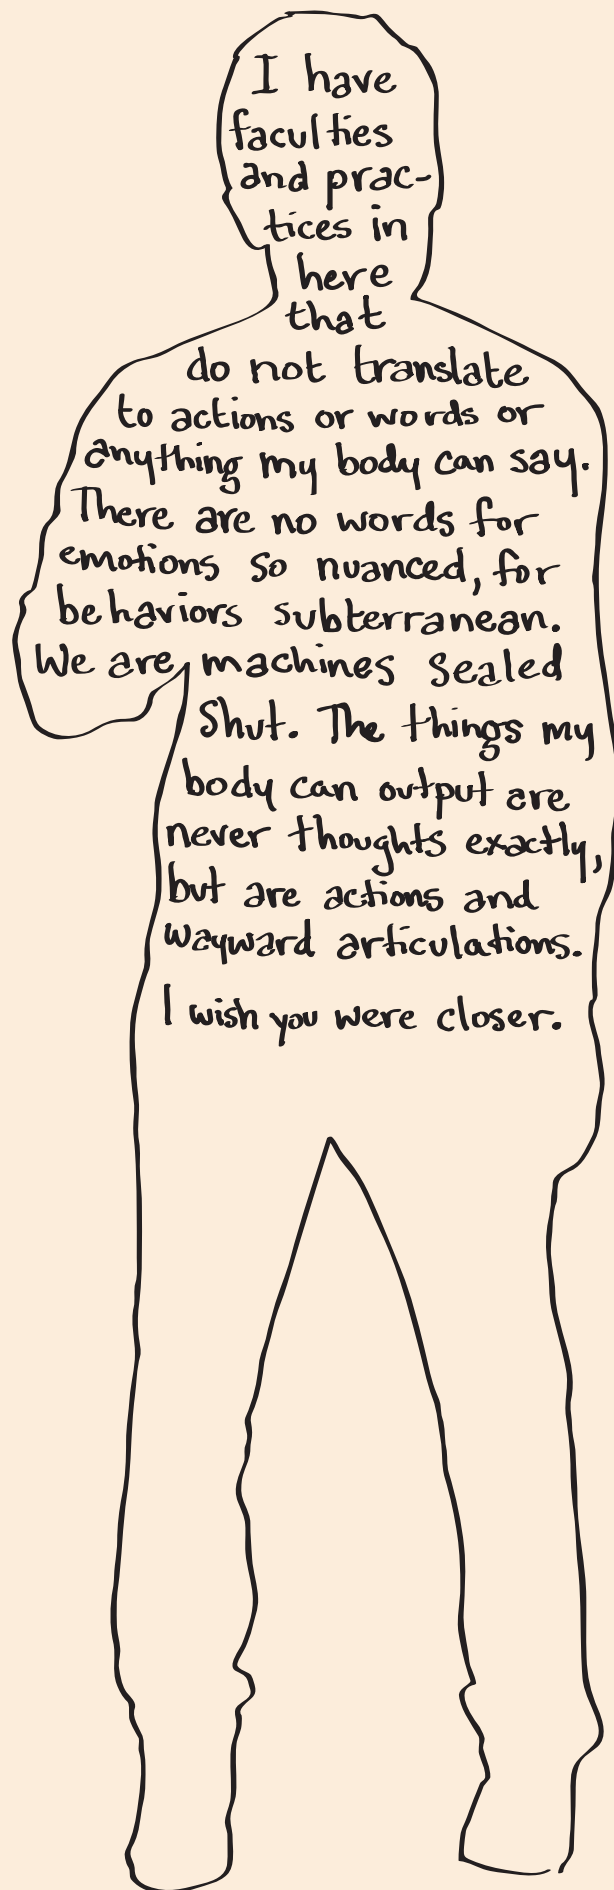 I have
faculties
and prac-
tices in
here
that
do not translate
to actions or words or
anything my body can say.
There are no words for
emotions so nuanced, for
behaviors subterranean.
We are machines sealed
Shut. The things my
body can output are
never thoughts exactly,
but are actions and
wayward articulations.
I wish you were closer.